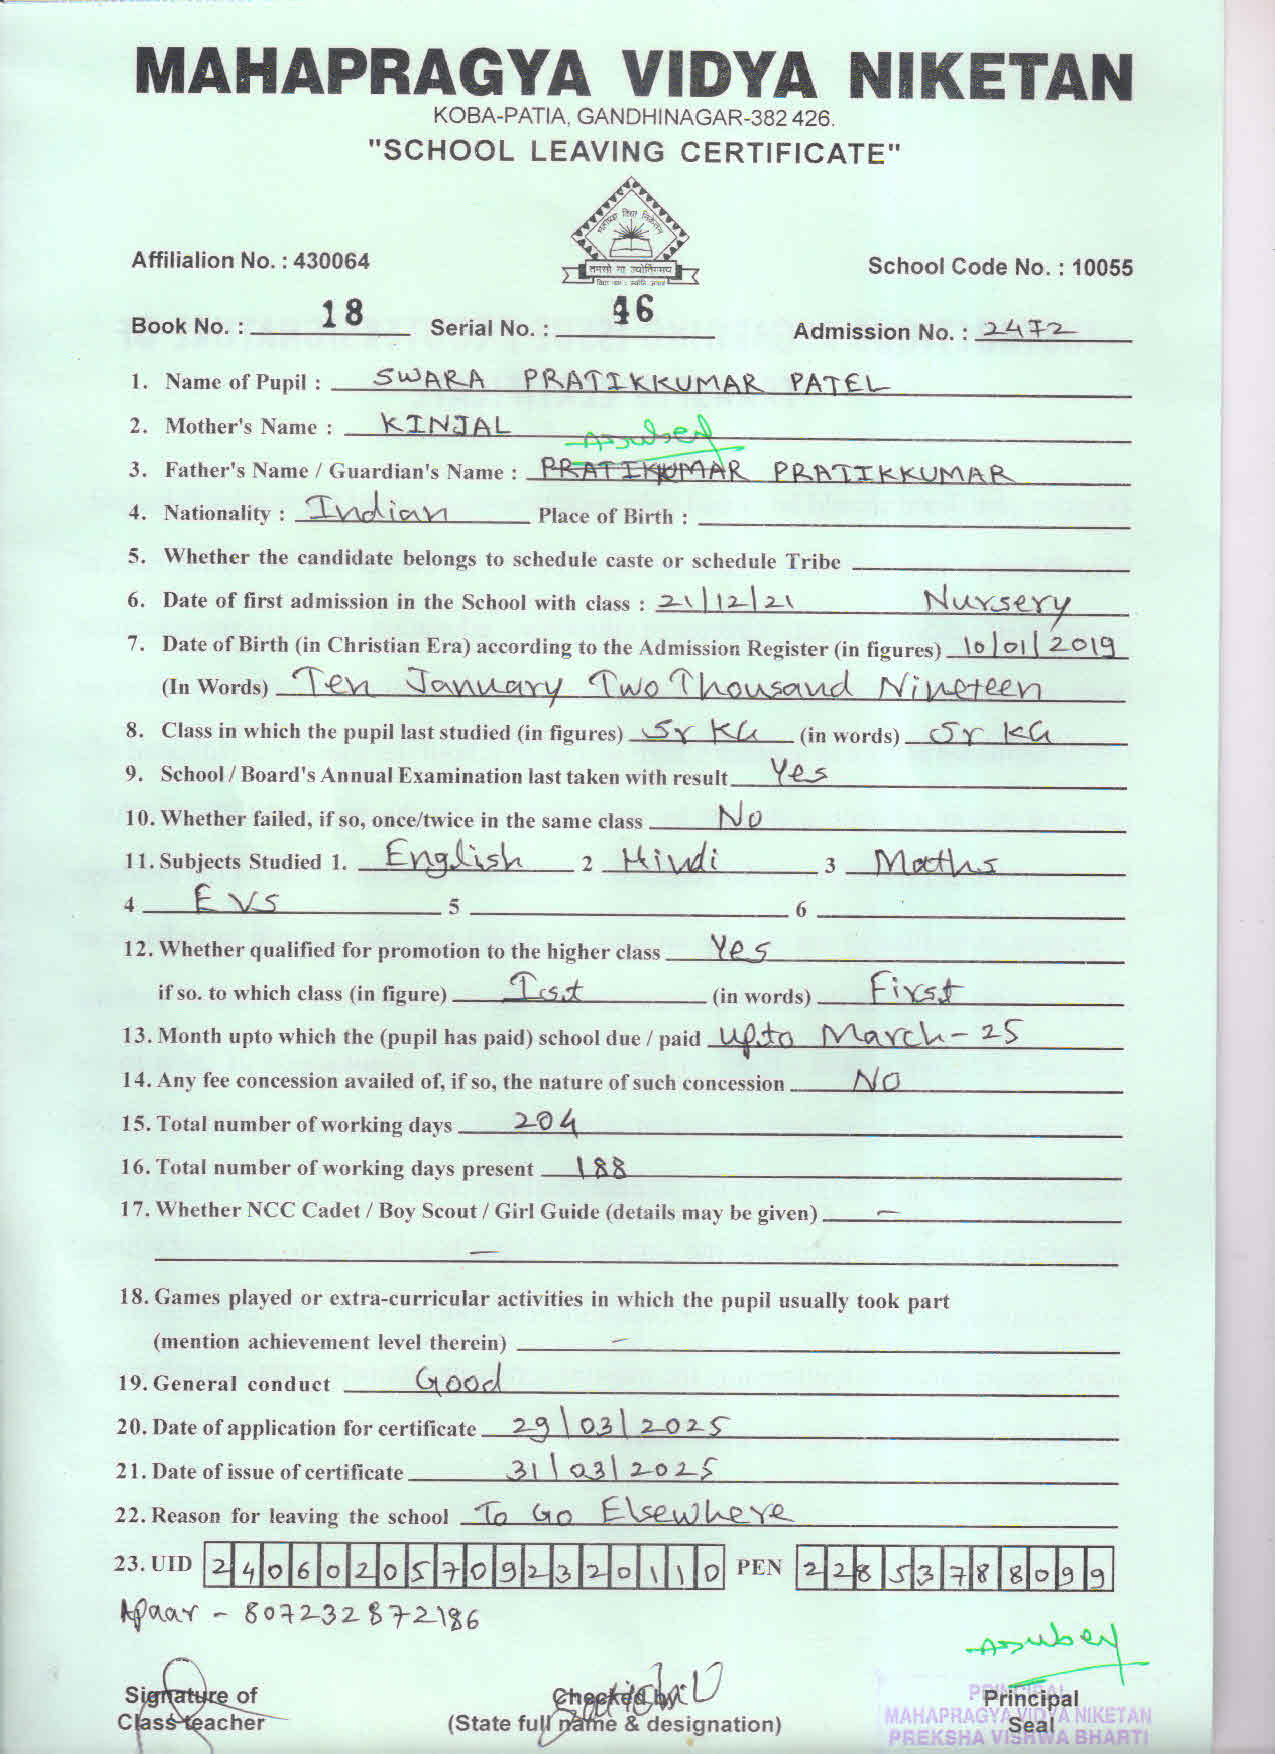 MAHAPRAGYA VIDYA NIKETAN
KOBA-PATIA, GANDHINAGAR-382 426.
"SCHOOL LEAVING CERTIFICATE"
महाप्रज्ञ विद्या निकेतन
तमसो मा ज्योतिर्गमय
Affilialion No. : 430064
School Code No. : 10055
Book No. : 18 Serial No. : 46 Admission No. : 2472
1. Name of Pupil : SWARA PRATIKKUMAR PATEL
2. Mother's Name : KINJAL
3. Father's Name / Guardian's Name : PRATIKUMAR PRATIKKUMAR
4. Nationality : Indian Place of Birth :
5. Whether the candidate belongs to schedule caste or schedule Tribe
6. Date of first admission in the School with class : 21/12/21 Nursery
7. Date of Birth (in Christian Era) according to the Admission Register (in figures) 10/01/2019
(In Words) Ten January Two Thousand Nineteen
8. Class in which the pupil last studied (in figures) Sr KG (in words) Sr KG
9. School / Board's Annual Examination last taken with result Yes
10. Whether failed, if so, once/twice in the same class No
11. Subjects Studied 1. English 2 Hindi 3 Maths
4 EVS 5 6
12. Whether qualified for promotion to the higher class Yes
if so. to which class (in figure) Ist (in words) First
13. Month upto which the (pupil has paid) school due / paid upto March-25
14. Any fee concession availed of, if so, the nature of such concession NO
15. Total number of working days 204
16. Total number of working days present 188
17. Whether NCC Cadet / Boy Scout / Girl Guide (details may be given) —
—
18. Games played or extra-curricular activities in which the pupil usually took part
(mention achievement level therein) —
19. General conduct Good
20. Date of application for certificate 29/03/2025
21. Date of issue of certificate 31/03/2025
22. Reason for leaving the school To Go Elsewhere
23. UID 240602057092320110 PEN 22853788099
Apaar - 807232872186
Signature of
Class teacher
Checked by
(State full name & designation)
PRINCIPAL
MAHAPRAGYA VIDYA NIKETAN
PREKSHA VISHWA BHARTI
Principal
Seal